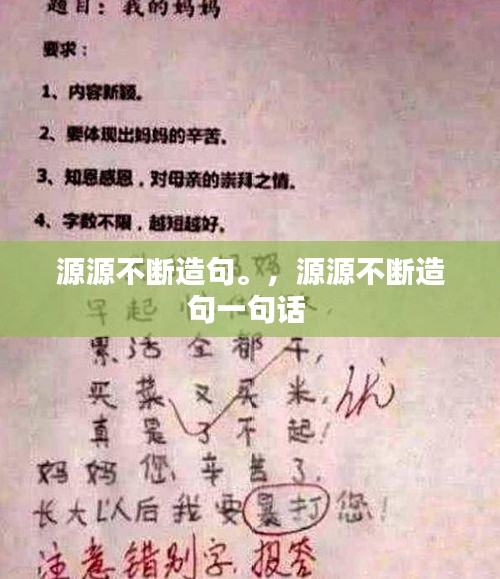 题目：我的妈妈
要求：
1、内容新颖。
2、要体现出妈妈的辛苦。
3、知恩感恩，对母亲的崇拜之情。
4、字数不限，越短越好。
源源不断造句。，源源不断造
句一句话
早起
累活全都干，
买菜又买米，优
真是了不起！
妈妈您辛苦了，
长大以后我要暴打您！
注意错别字，报答